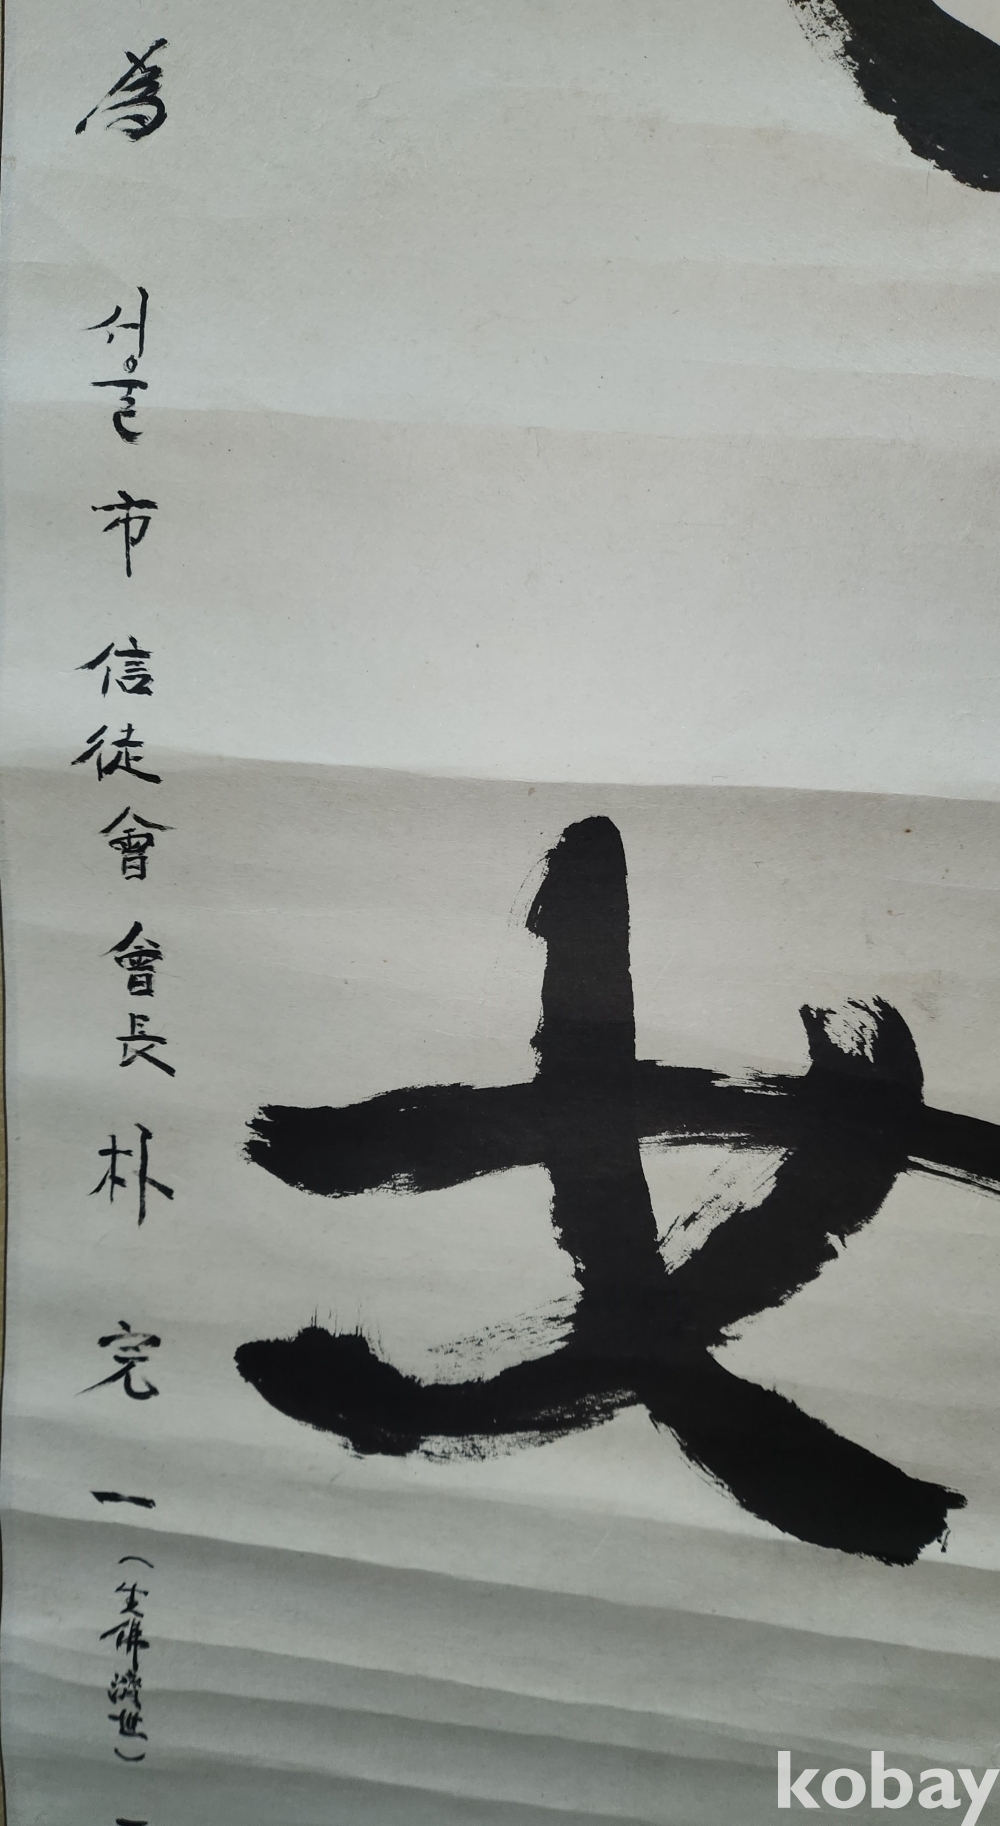 女
為 서울市 信徒會 會長 朴 完 一 (生佛濟世)
kobay